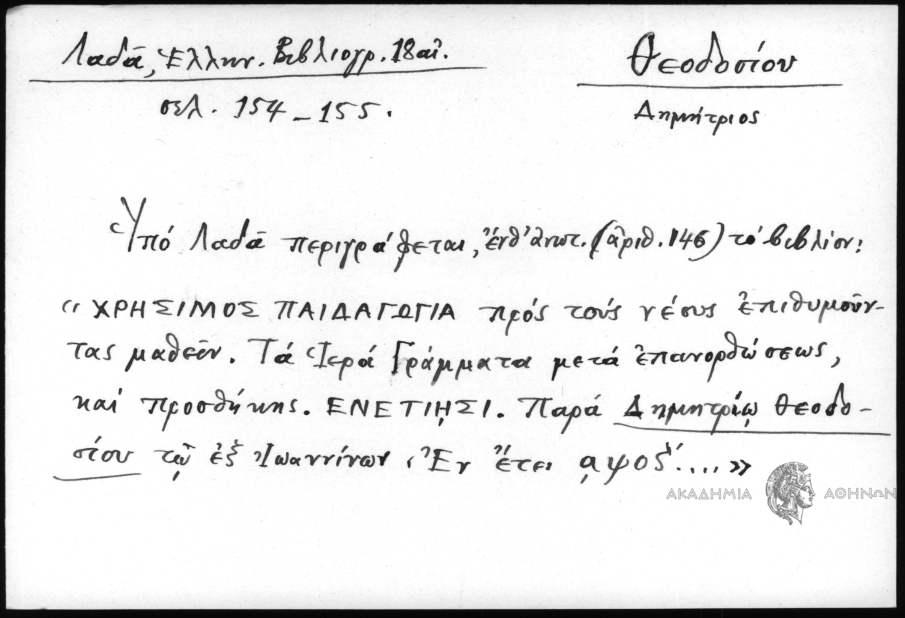 Λαδᾶ, Ἑλλην. Βιβλιογρ. 18 αἰ.
Θεοδοσίου
σελ. 154-155.
Δημήτριος
Ὑπό Λαδᾶ περιγράφεται, ἔνθ' ἀνωτ. (ἀριθ. 146) τό βιβλίον:
«ΧΡΗΣΙΜΟΣ ΠΑΙΔΑΓΩΓΙΑ πρός τούς νέους ἐπιθυμοῦν-
τας μαθεῖν. Τά Ἱερά Γράμματα μετά ἐπανορθώσεως,
καί προσθήκης. ΕΝΕΤΙῌΣΙ. Παρά Δημητρίῳ Θεοδο-
σίου τῷ ἐξ Ἰωαννίνων. Ἐν ἔτει ͵αψοζ´....»
ΑΚΑΔΗΜΙΑ ΑΘΗΝΩΝ